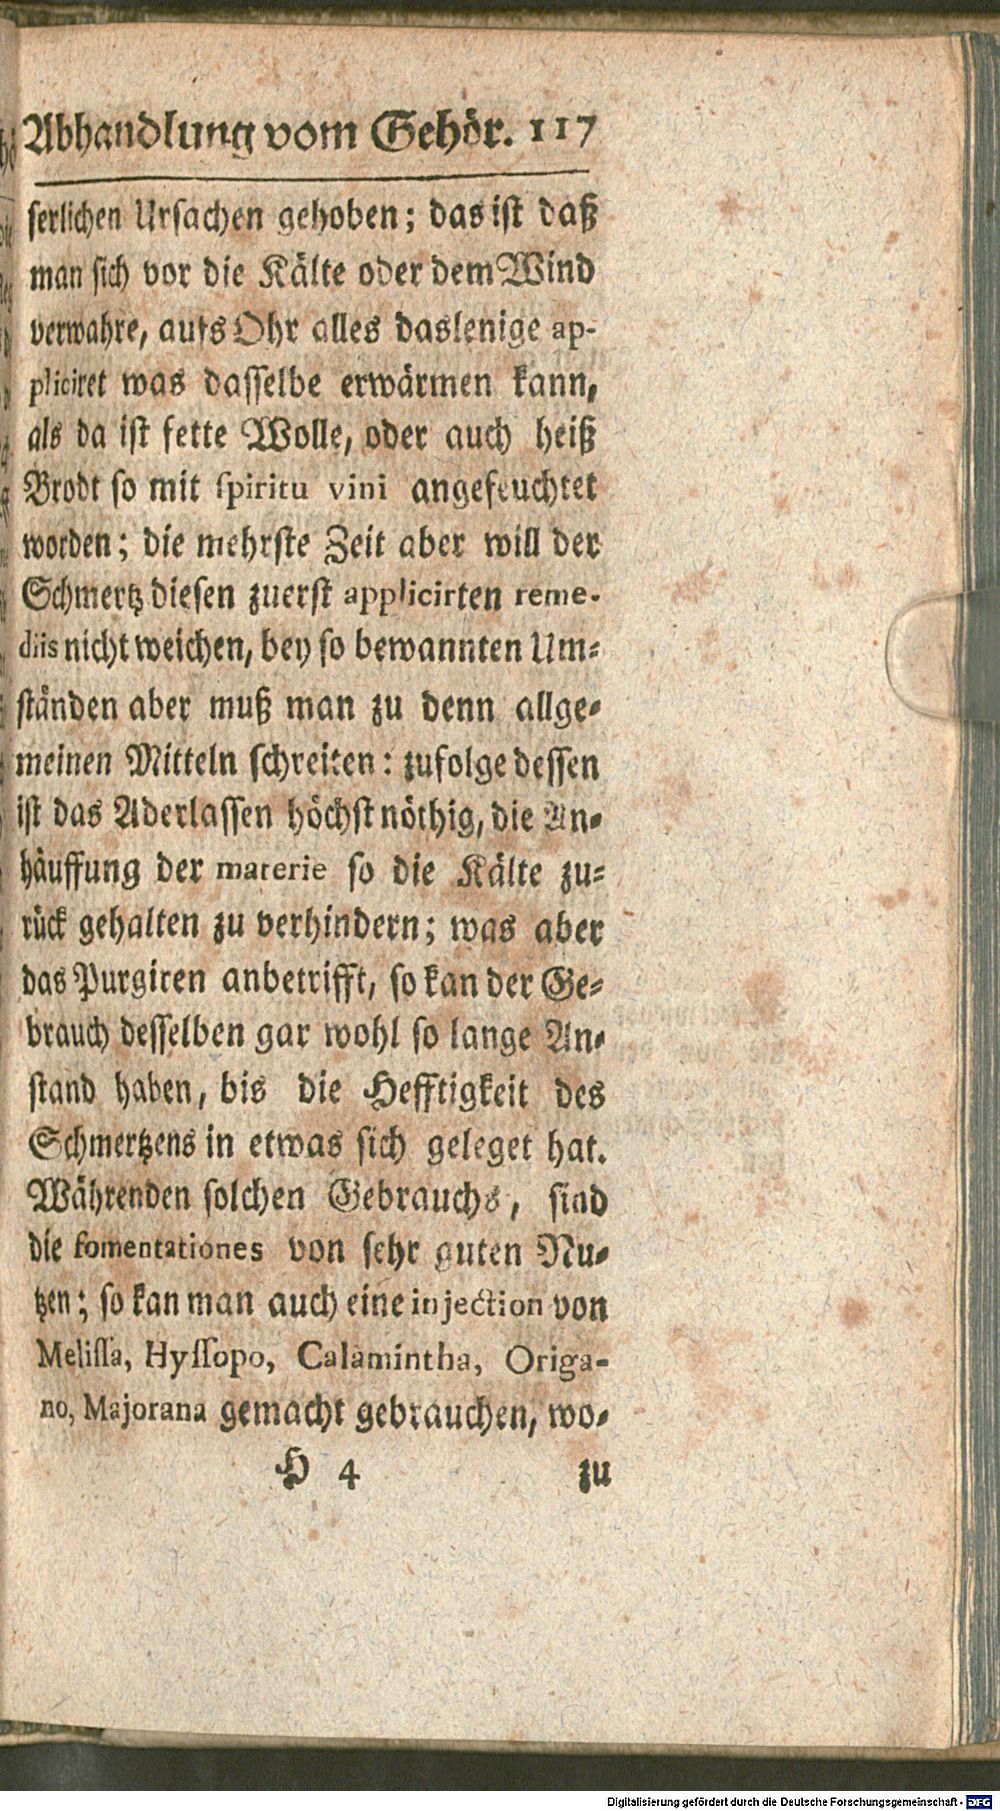 Abhandlung vom Gehör. 117
serlichen Ursachen gehoben; das ist daß
man sich vor die Kälte oder dem Wind
verwahre, aufs Ohr alles dasjenige ap-
pliciret was dasselbe erwärmen kann,
als da ist fette Wolle, oder auch heiß
Brodt so mit spiritu vini angefeuchtet
worden; die mehrste Zeit aber will der
Schmertz diesen zuerst applicirten reme-
diis nicht weichen, bey so bewannten Um-
ständen aber muß man zu denn allge-
meinen Mitteln schreiten: zufolge dessen
ist das Aderlassen höchst nöthig, die An-
häuffung der materie so die Kälte zu-
rück gehalten zu verhindern; was aber
das Purgiren anbetrifft, so kan der Ge-
brauch desselben gar wohl so lange An-
stand haben, bis die Hefftigkeit des
Schmertzens in etwas sich geleget hat.
Währenden solchen Gebrauchs, sind
die fomentationes von sehr guten Nu-
tzen; so kan man auch eine injection von
Melissa, Hyssopo, Calamintha, Origa-
no, Majorana gemacht gebrauchen, wo-
H 4 zu
Digitalisierung gefördert durch die Deutsche Forschungsgemeinschaft - DFG